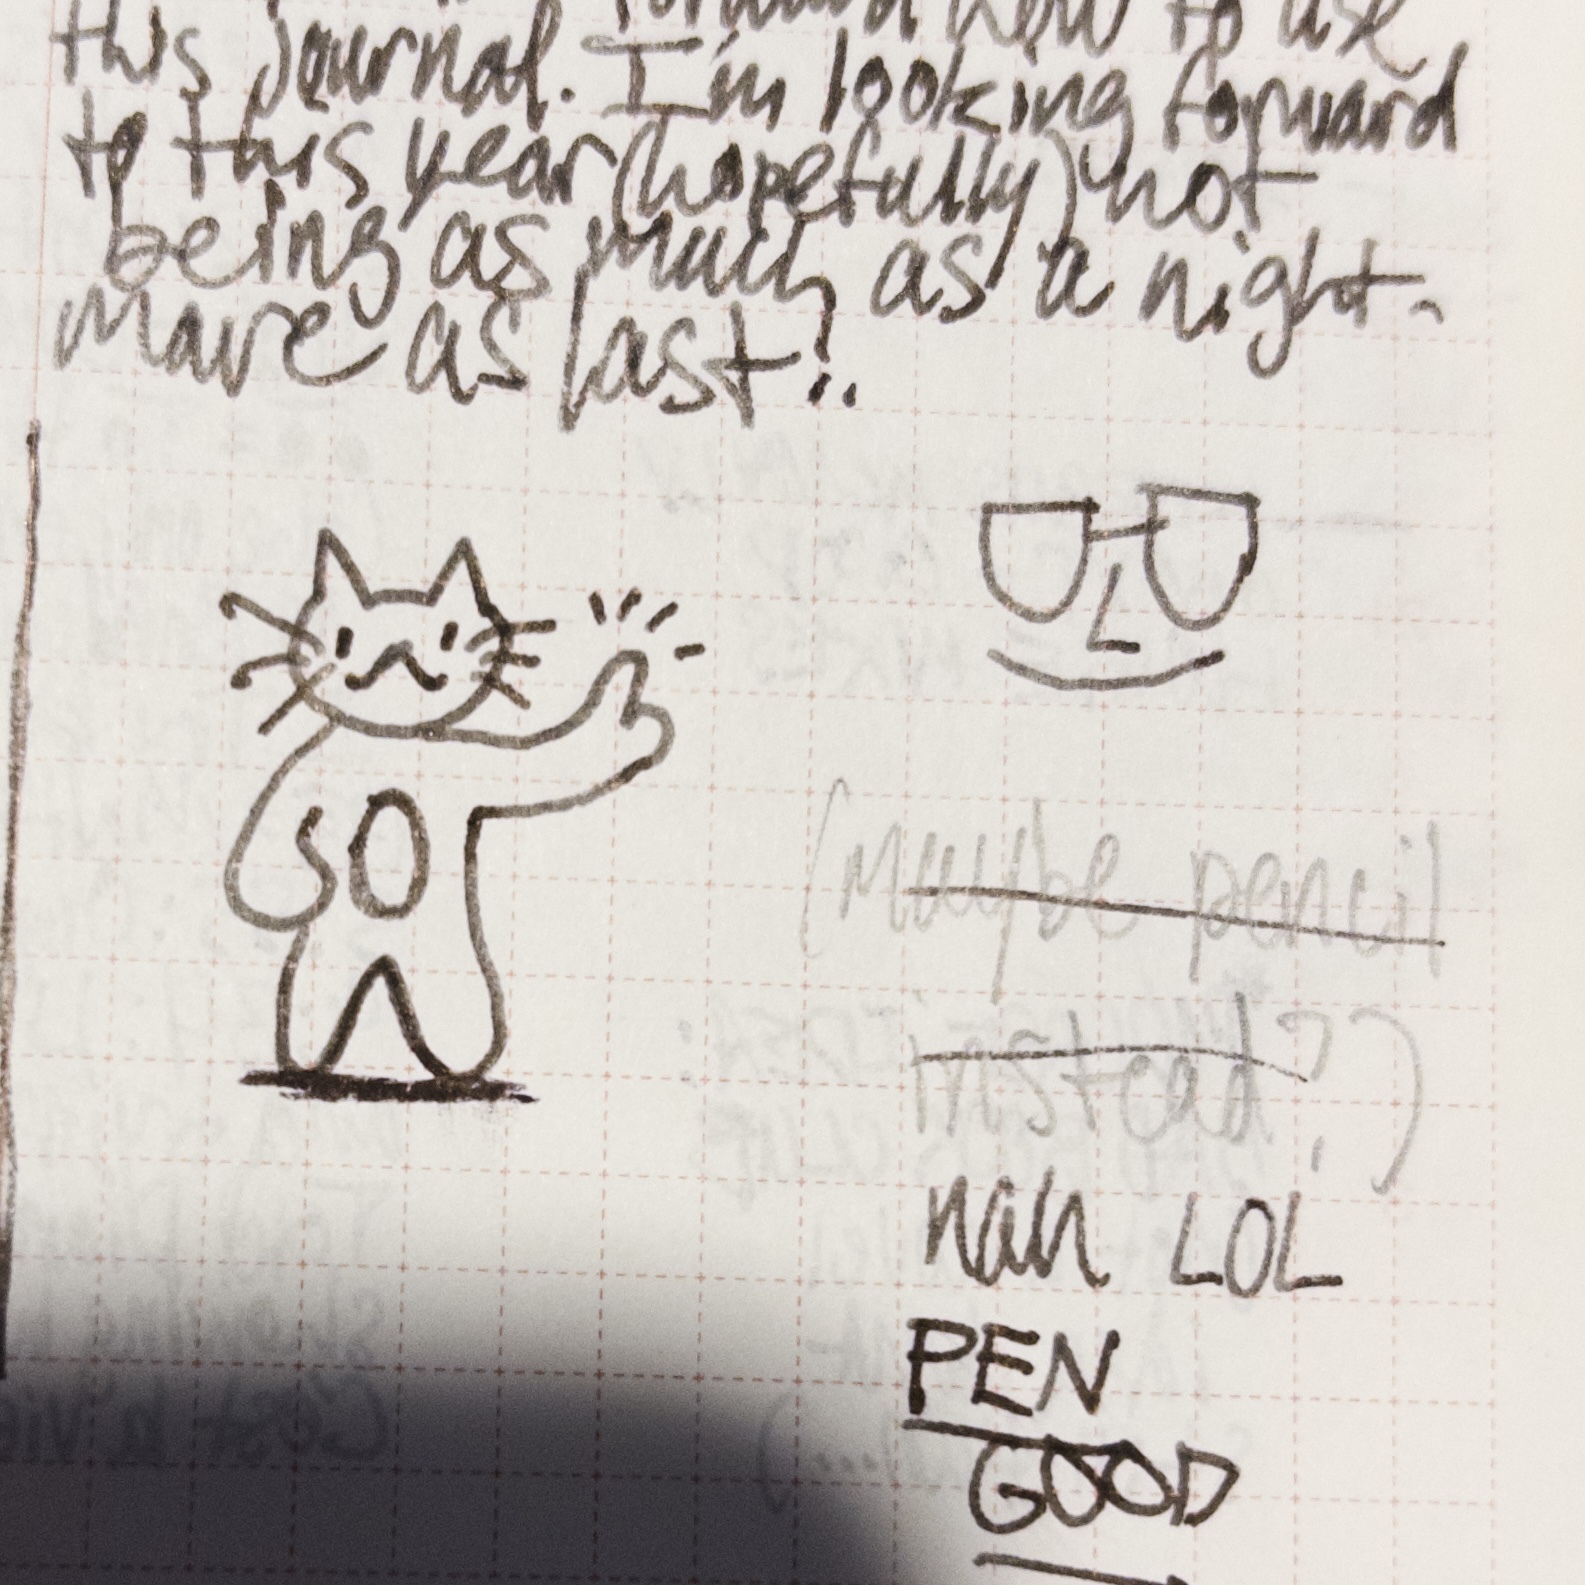 how to use
this journal. I'm looking forward
to this year (hopefully) not
being as much as a night-
mare as last!..
(Maybe pencil
instead??)
nah LOL
PEN
GOOD